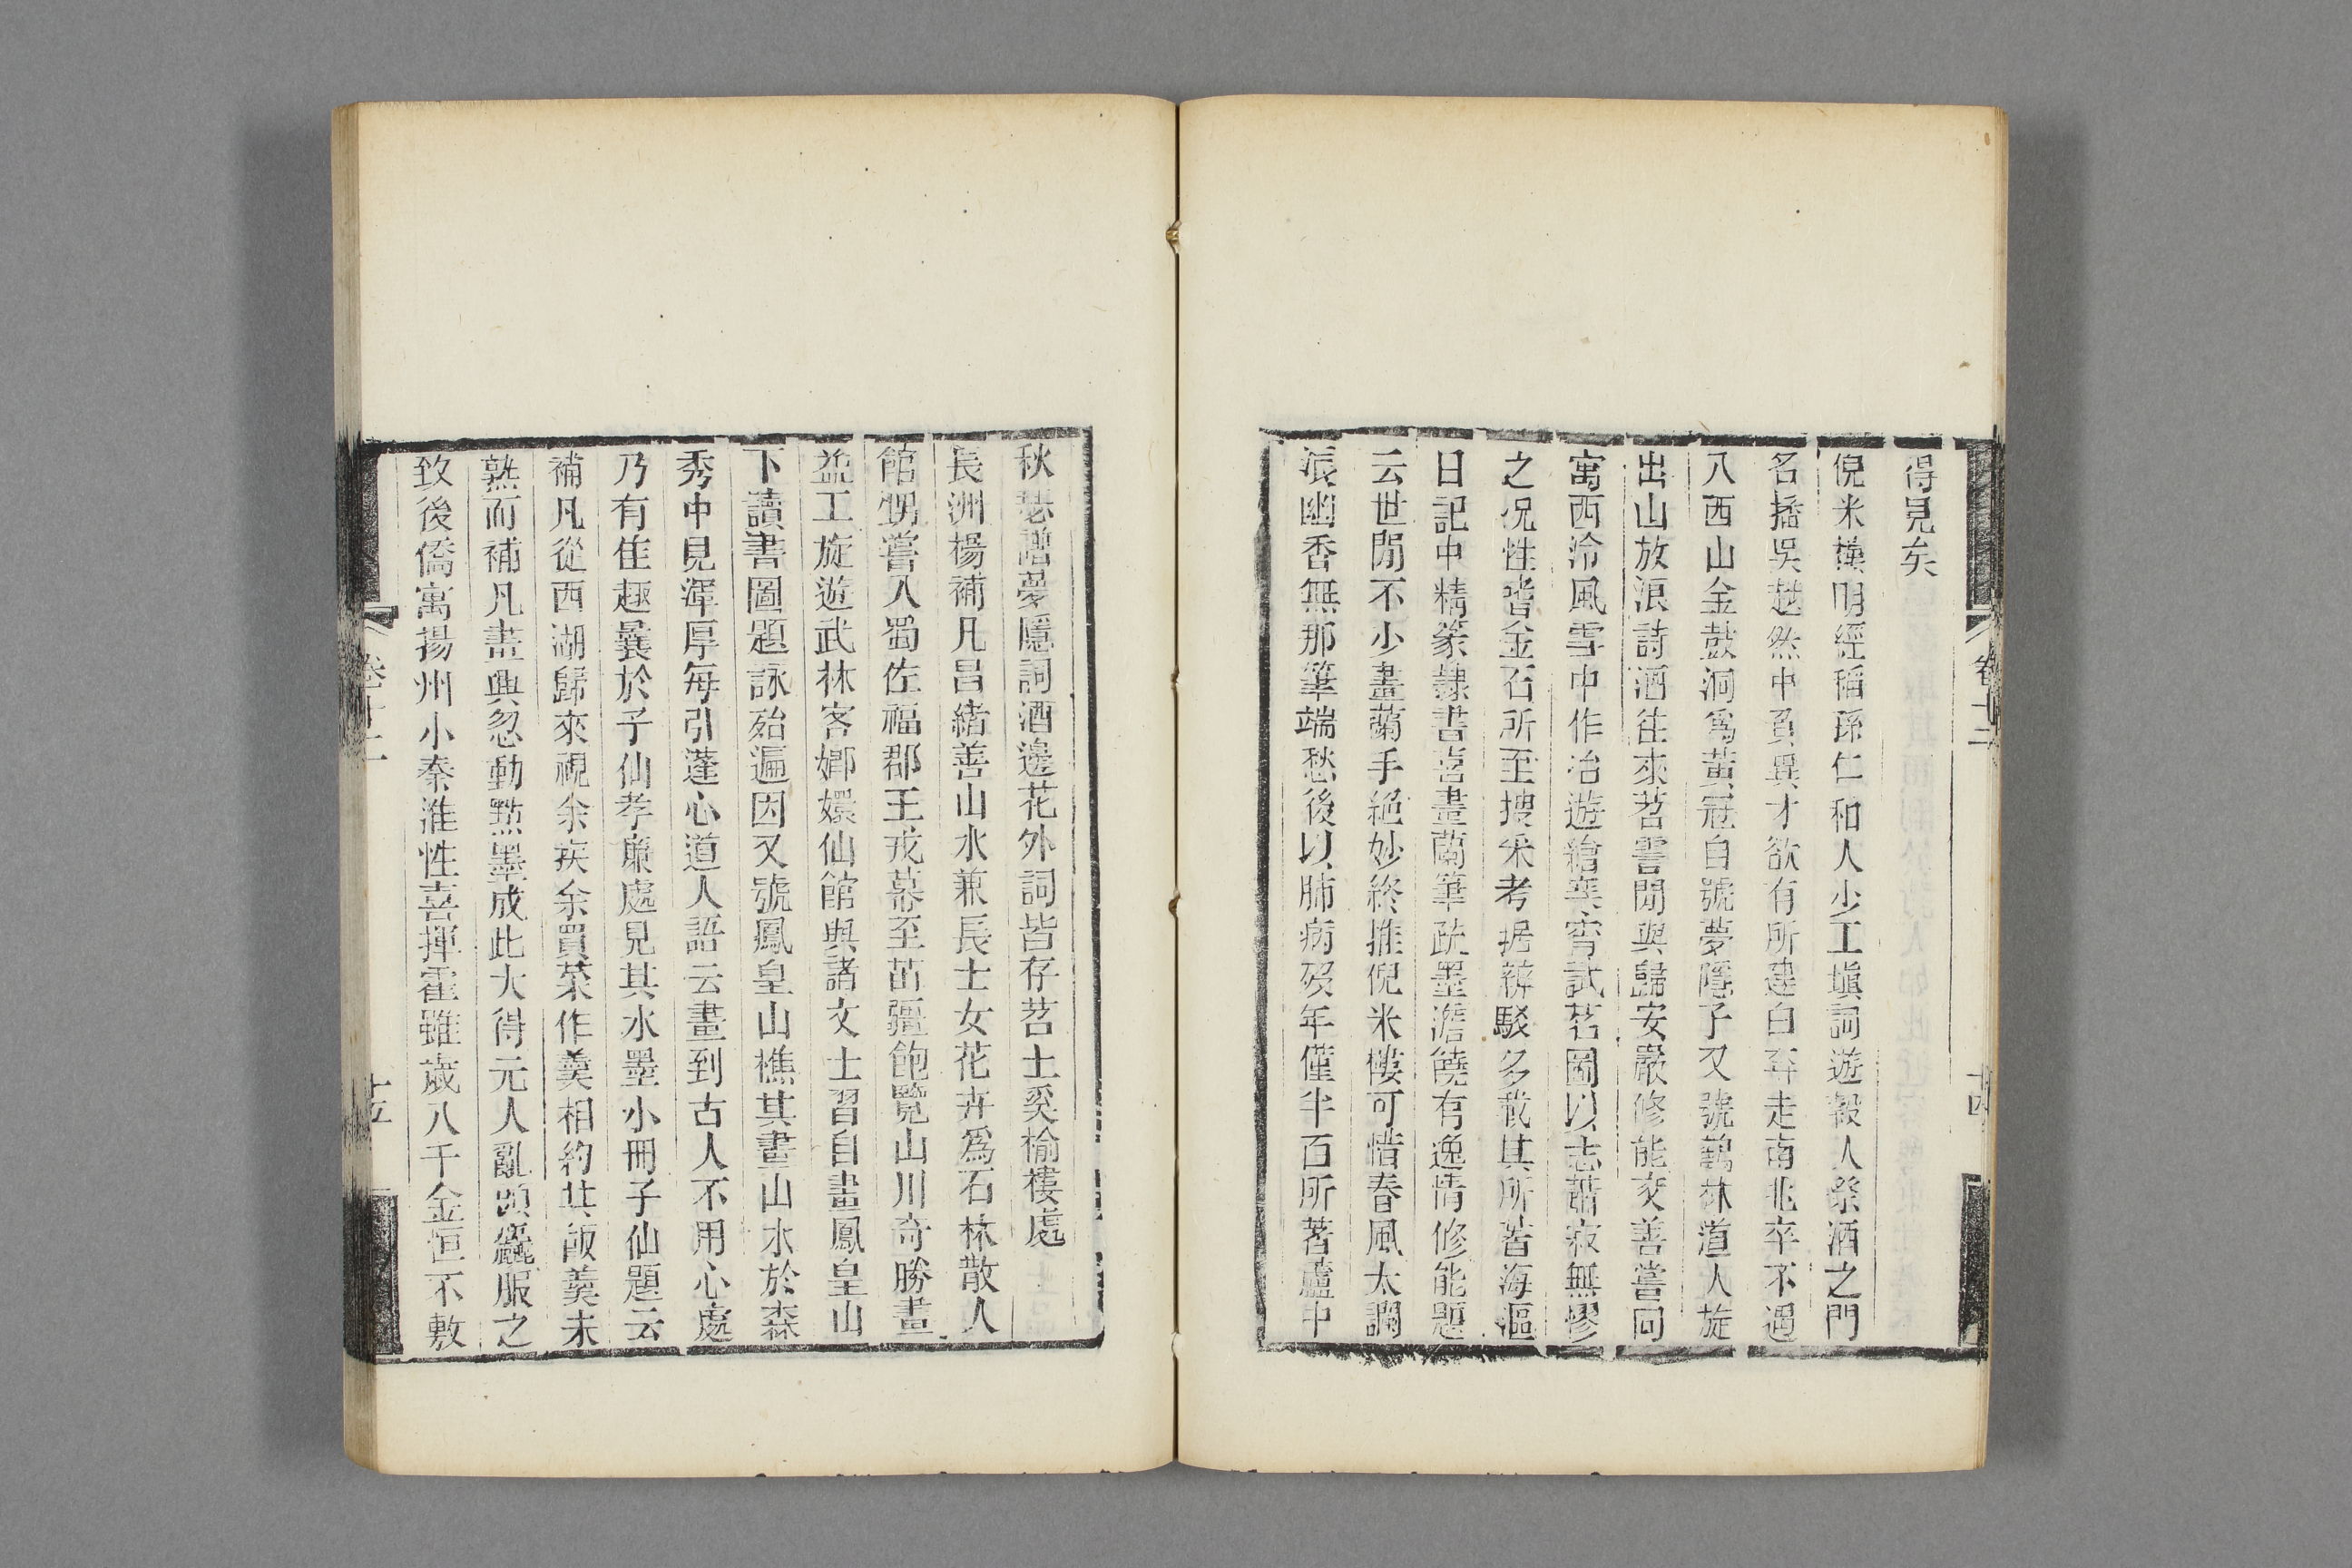 得見矣
倪米樓明經稻孫仁和人少工塡詞遊穀人祭酒之門
名播吳越然中負異才欲有所建白奔走南北卒不遇
入西山金鼓洞爲黃冠自號夢隱子又號鶴林道人旋
出山放浪詩酒往來苕霅閒與歸安嚴修能交善嘗同
寓西泠風雪中作冶遊繪寒宵試茗圖以志蕭寂無憀
之況性嗜金石所至搜采考据辨駁多載其所著海漚
日記中精篆隸書喜畫蘭筆疏墨澹饒有逸情修能題
云世閒不少畫蘭手絕妙終推倪米樓可惜春風太調
浪幽香無那筆端愁後以肺病歿年僅半百所著蘆中
卷十二
十四
秋瑟譜夢隱詞酒邊花外詞皆存苕士奚榆樓處
長洲楊補凡昌緒善山水兼長士女花卉爲石林散人
館甥嘗入蜀佐福郡王戎幕至苗疆飽覽山川奇勝畫
益工旋遊武林客嫏嬛仙館與諸文士習自畫鳳皇山
下讀書圖題詠殆遍因又號鳳皇山樵其畫山水於森
秀中見渾厚每引蓬心道人語云畫到古人不用心處
乃有佳趣曩於子仙孝廉處見其水墨小冊子仙題云
補凡從西湖歸來視余疾余買菜作羹相約共飯羹未
熟而補凡畫興忽動㸃墨成此大得元人亂頭麤服之
致後僑寓揚州小秦淮性喜揮霍雖歲入千金恒不敷
卷十二
十五